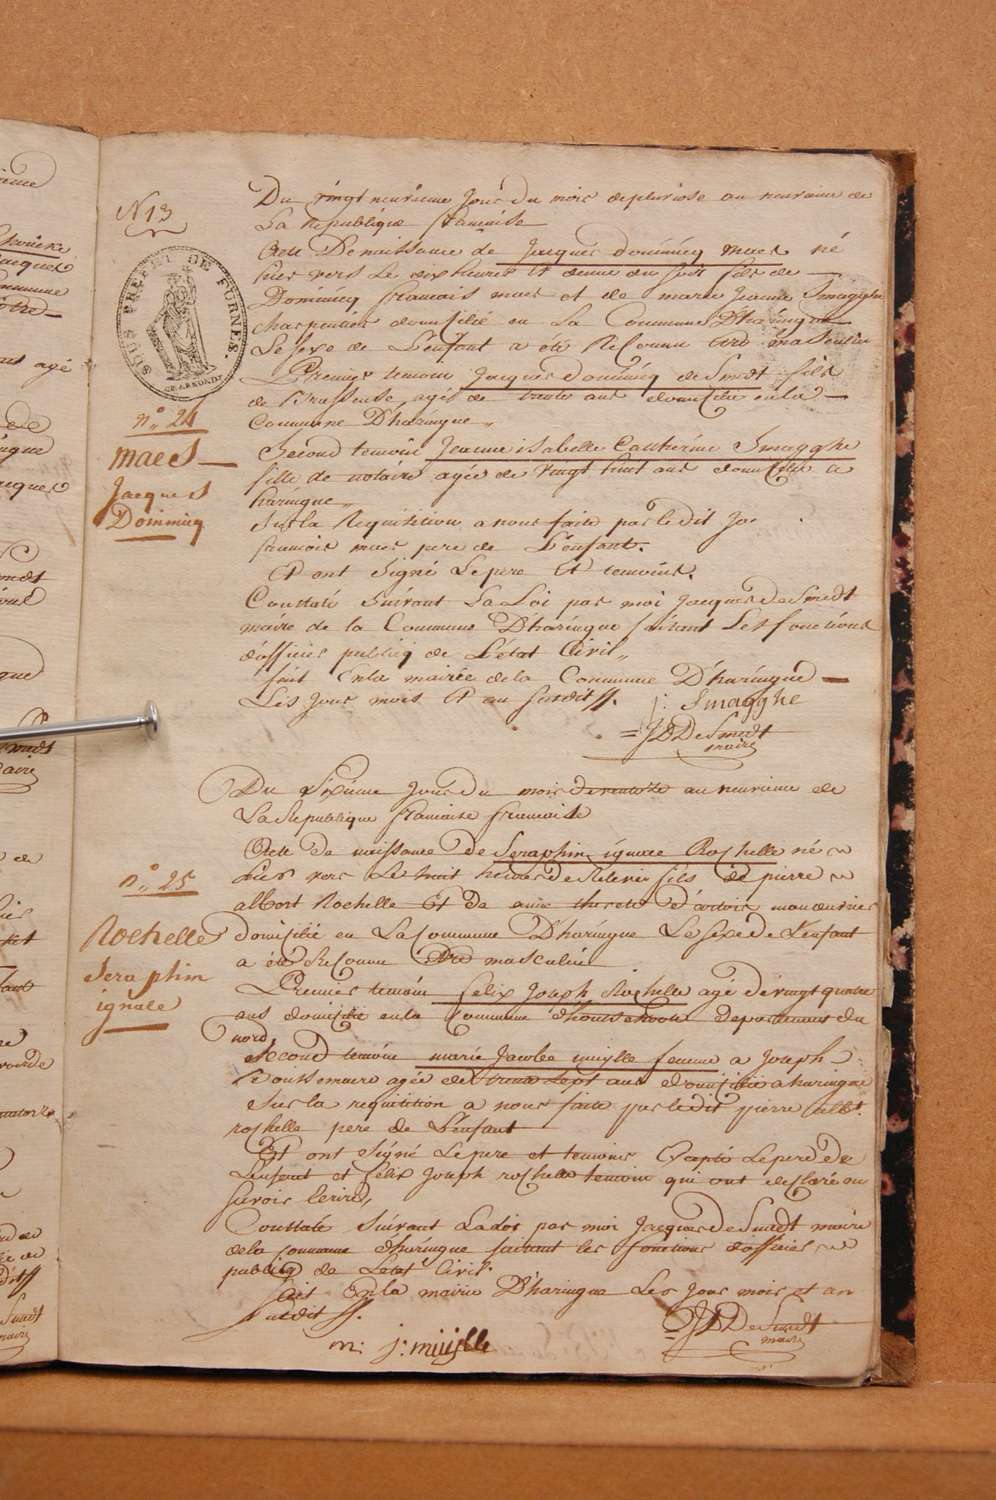 N 13
SOUS PREFET DE FURNES.
Du vingt neuvieme Jour du mois depluviose an neuvieme de
La Republique francaise
Acte De naissance de Jacques dominicq maes né
hier vers Le dix heures et demie du soir fils de
Dominicq francois maes et de marie Jeanne Smagghe
charpentier domicilié en La Commune D'haringue
Le sexe de L'enfant a eté Reconnu etre masculin
Premier temoin Jacques dominicq de Smedt fils
de Brasseur agé de trente ans domicilié en la
Commune D'haringue
n° 24
maes
Jacques
Dominicq
Second temoin Jeanne isabelle Catherine Smagghe
fille de notaire agée de vingt huit ans domicilié a
haringue
Sur la Requisition a nous faite par le dit Do.
francois maes pere de L'enfant.
Et ont Signé Le pere Et temoins.
Constaté Suivant La Loi par moi Jacques De Smedt
maire de la Commune D'haringue faisant Les fonctions
d'officier publicq de L'etat Civil
fait En la mairie de la Commune D'haringue
Les Jour mois Et an susdits.
j: Smagghe
= JD De Smedt
maire
Du Sixieme Jour Du mois de ventose an neuvieme de
La Republique francaise
n° 25
Rochelle
Seraphin
ignace
Acte De naissance De Seraphin ignace Rochelle né
hier vers Le huit heures de fils de pierre
albert Rochelle Et De anne therese D'artois manouvrier
domicilié en La Commune D'haringue Le sexe de L'enfant
a eté Reconnu Etre masculin
Premier temoin felix Joseph Rochelle agé de vingt quatre
ans domicilié en la Commune d'houtschoote Departement du
nord
Second temoin marie Jacobe muylle femme a Joseph
agée de trente sept ans domicilié a haringue
Sur la requisition a nous faite par le dit pierre albt.
rochelle pere de L'enfant
Et ont Signé Le pere et temoins Excepté Le pere de
L'enfant et felix Joseph rochelle temoin qui ont declaré ne
savoir Ecrire
Constaté Suivant La Loi par moi Jacques De Smedt maire
de la commune d'haringue faisant les fonctions d'officier
publicq de L'etat Civil.
fait En la mairie D'haringue Les Jour mois et an
susdit
m: j: muijlle
= JD De Smedt
maire